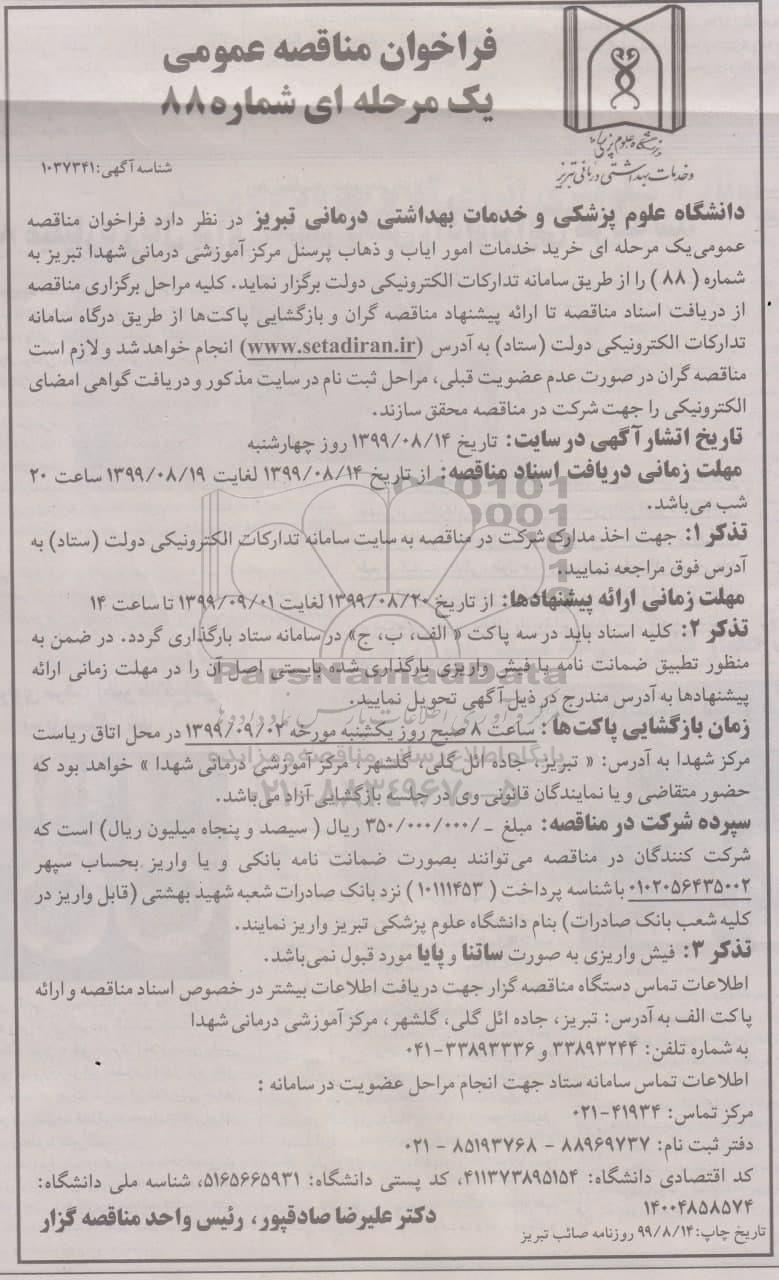 فراخوان مناقصه عمومی
یک مرحله ای شماره ۸۸
دانشگاه علوم پزشکی
و خدمات بهداشتی درمانی تبریز
شناسه آگهی: ۱۰۳۷۳۴۱
دانشگاه علوم پزشکی و خدمات بهداشتی درمانی تبریز در نظر دارد فراخوان مناقصه
عمومی یک مرحله ای خرید خدمات امور ایاب و ذهاب پرسنل مرکز آموزشی درمانی شهدا تبریز به
شماره ( ۸۸ ) را از طریق سامانه تدارکات الکترونیکی دولت برگزار نماید. کلیه مراحل برگزاری مناقصه
از دریافت اسناد مناقصه تا ارائه پیشنهاد مناقصه گران و بازگشایی پاکت‌ها از طریق درگاه سامانه
تدارکات الکترونیکی دولت (ستاد) به آدرس (www.setadiran.ir) انجام خواهد شد و لازم است
مناقصه گران در صورت عدم عضویت قبلی، مراحل ثبت نام در سایت مذکور و دریافت گواهی امضای
الکترونیکی را جهت شرکت در مناقصه محقق سازند.
تاریخ انتشار آگهی در سایت: تاریخ ۱۳۹۹/۰۸/۱۴ روز چهارشنبه
مهلت زمانی دریافت اسناد مناقصه: از تاریخ ۱۳۹۹/۰۸/۱۴ لغایت ۱۳۹۹/۰۸/۱۹ ساعت ۲۰
شب می‌باشد.
تذکر ۱: جهت اخذ مدارک شرکت در مناقصه به سایت سامانه تدارکات الکترونیکی دولت (ستاد) به
آدرس فوق مراجعه نمایید.
مهلت زمانی ارائه پیشنهادها: از تاریخ ۱۳۹۹/۰۸/۲۰ لغایت ۱۳۹۹/۰۹/۰۱ تا ساعت ۱۴
تذکر ۲: کلیه اسناد باید در سه پاکت « الف، ب، ج» در سامانه ستاد بارگذاری گردد. در ضمن به
منظور تطبیق ضمانت نامه یا فیش واریزی بارگذاری شده بایستی اصل آن را در مهلت زمانی ارائه
پیشنهادها به آدرس مندرج در ذیل آگهی تحویل نمایید.
زمان بازگشایی پاکت‌ها : ساعت ۸ صبح روز یکشنبه مورخه ۱۳۹۹/۰۹/۰۲ در محل اتاق ریاست
مرکز شهدا به آدرس: « تبریز، جاده ائل گلی، گلشهر ، مرکز آموزشی درمانی شهدا » خواهد بود که
حضور متقاضی و یا نمایندگان قانونی وی در جلسه بازگشایی آزاد می‌باشد.
سپرده شرکت در مناقصه: مبلغ -/۳۵۰/۰۰۰/۰۰۰ ریال ( سیصد و پنجاه میلیون ریال) است که
شرکت کنندگان در مناقصه می‌توانند بصورت ضمانت نامه بانکی و یا واریز بحساب سپهر
۰۱۰۲۰۵۶۴۳۵۰۰۲ با شناسه پرداخت ( ۱۰۱۱۱۴۵۳ ) نزد بانک صادرات شعبه شهید بهشتی (قابل واریز در
کلیه شعب بانک صادرات) بنام دانشگاه علوم پزشکی تبریز واریز نمایند.
تذکر ۳: فیش واریزی به صورت ساتنا و پایا مورد قبول نمی‌باشد.
اطلاعات تماس دستگاه مناقصه گزار جهت دریافت اطلاعات بیشتر در خصوص اسناد مناقصه و ارائه
پاکت الف به آدرس: تبریز، جاده ائل گلی، گلشهر، مرکز آموزشی درمانی شهدا
به شماره تلفن: ۳۳۸۹۳۲۴۴ و ۳۳۸۹۳۳۳۶-۰۴۱
اطلاعات تماس سامانه ستاد جهت انجام مراحل عضویت در سامانه :
مرکز تماس: ۴۱۹۳۴-۰۲۱
دفتر ثبت نام: ۸۸۹۶۹۷۳۷ - ۸۵۱۹۳۷۶۸ - ۰۲۱
کد اقتصادی دانشگاه: ۴۱۱۳۷۳۸۹۵۱۵۴، کد پستی دانشگاه: ۵۱۶۵۶۶۵۹۳۱، شناسه ملی دانشگاه:
۱۴۰۰۴۸۵۸۵۷۴
دکتر علیرضا صادقپور، رئیس واحد مناقصه گزار
تاریخ چاپ: ۹۹/۸/۱۴ روزنامه صائب تبریز
ParsNamadData